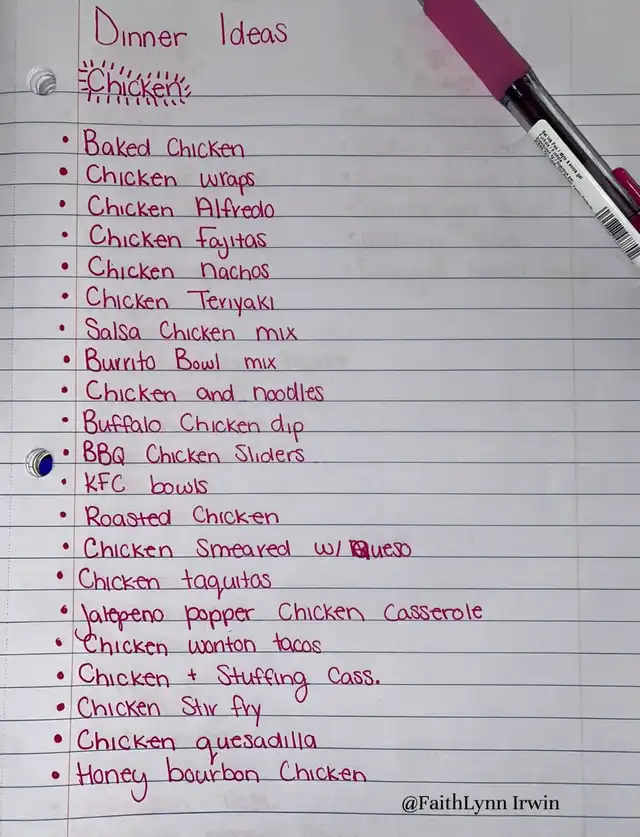 Dinner Ideas
Chicken
• Baked Chicken
• Chicken wraps
• Chicken Alfredo
• Chicken fajitas
• Chicken nachos
• Chicken Teriyaki
• Salsa Chicken mix
• Burrito Bowl mix
• Chicken and noodles
• Buffalo Chicken dip
• BBQ Chicken Sliders
• KFC bowls
• Roasted Chicken
• Chicken Smeared w/ Queso
• Chicken taquitos
• Jalepeno popper Chicken Casserole
• Chicken wonton tacos
• Chicken + Stuffing Cass.
• Chicken Stir fry
• Chicken quesadilla
• Honey bourbon Chicken
@FaithLynn Irwin